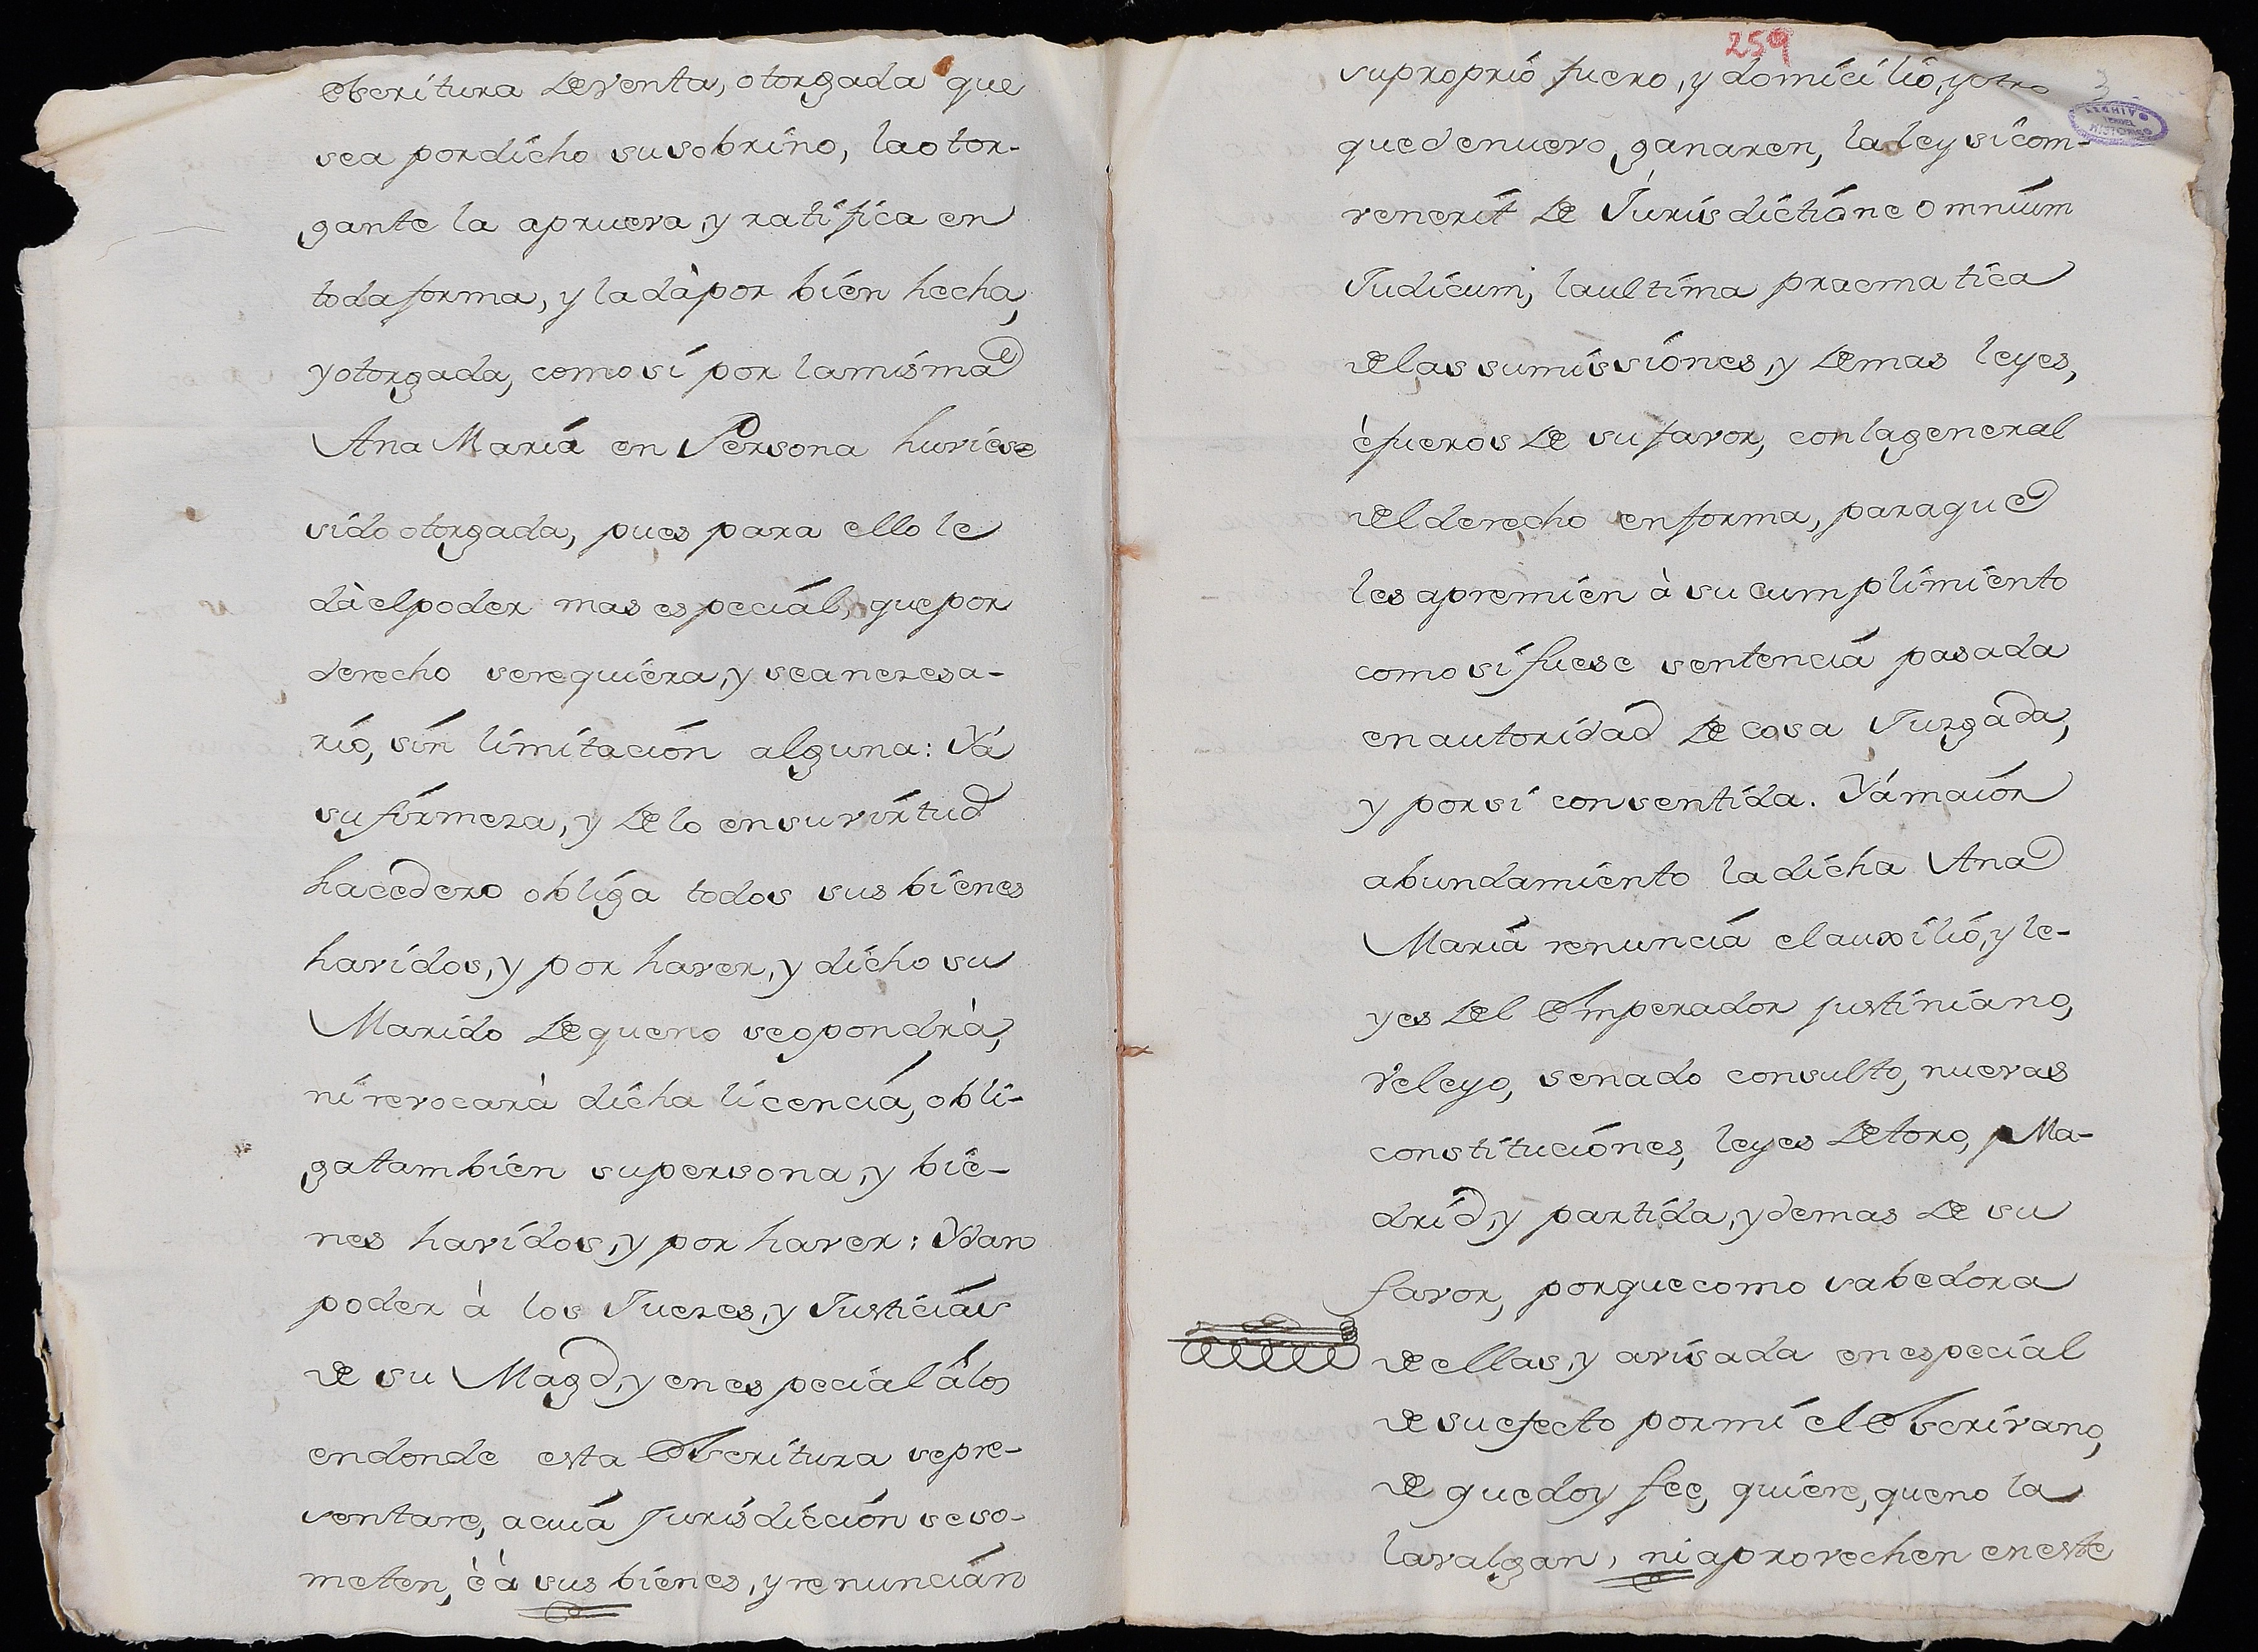 escritura de venta, otorgada que
sea por dicho su sobrino, la otor-
gante la aprueva, y ratifica en
toda forma, y la dà por bien hecha,
y otorgada, como si por la misma
Ana Maria en Persona huviese
sido otorgada, pues para ello le
dà el poder mas especiál, que por
derecho se requiera, y sea nezesa-
rio, sin limitación alguna: Yá
su firmeza, y de lo en su virtud
hacedero obliga todos sus bienes
havidos, y por haver, y dicho su
Marido de que no se opondrà,
ni revocarà dicha licenciá, obli-
ga tambien su persona, y bie-
nes havidos, y por haver: Y dan
poder à los Juezes, y Justiciás
de su Magd, y en especial â los
en donde esta Escritura se pre-
sentare, a cuiá Jurisdicción se so-
meten, è à sus bienes, y renuncián
259
su proprio fuero, y domicilio, y otro
3
ARCHIVO
HISTORICO
que de nuevo ganaren, la ley si com-
venerit de Jurisdictióne omnium
Judicum, la ultima pracmatica
de las sumissiones, y demas leyes,
è fueros de su favor, con la general
del derecho en forma, para que
les apremien à su cumplimiento
como si fuese sentenciá pasada
en autoridad de cosa Juzgada,
y por si consentida. Yá maiór
abundamiento la dicha Ana
Mariá renunciá el auxilió, y le-
yes del Emperador justiniano,
Veleyo, senado consulto, nuevas
constituciónes, leyes de toro, Ma-
drid, y partida, y demas de su
favor, porque como sabedora
de ellas, y avisada en especial
de su efecto por mi el Escrivano,
de que doy fee, quiere, que no la
la valgan, ni aprovechen en este